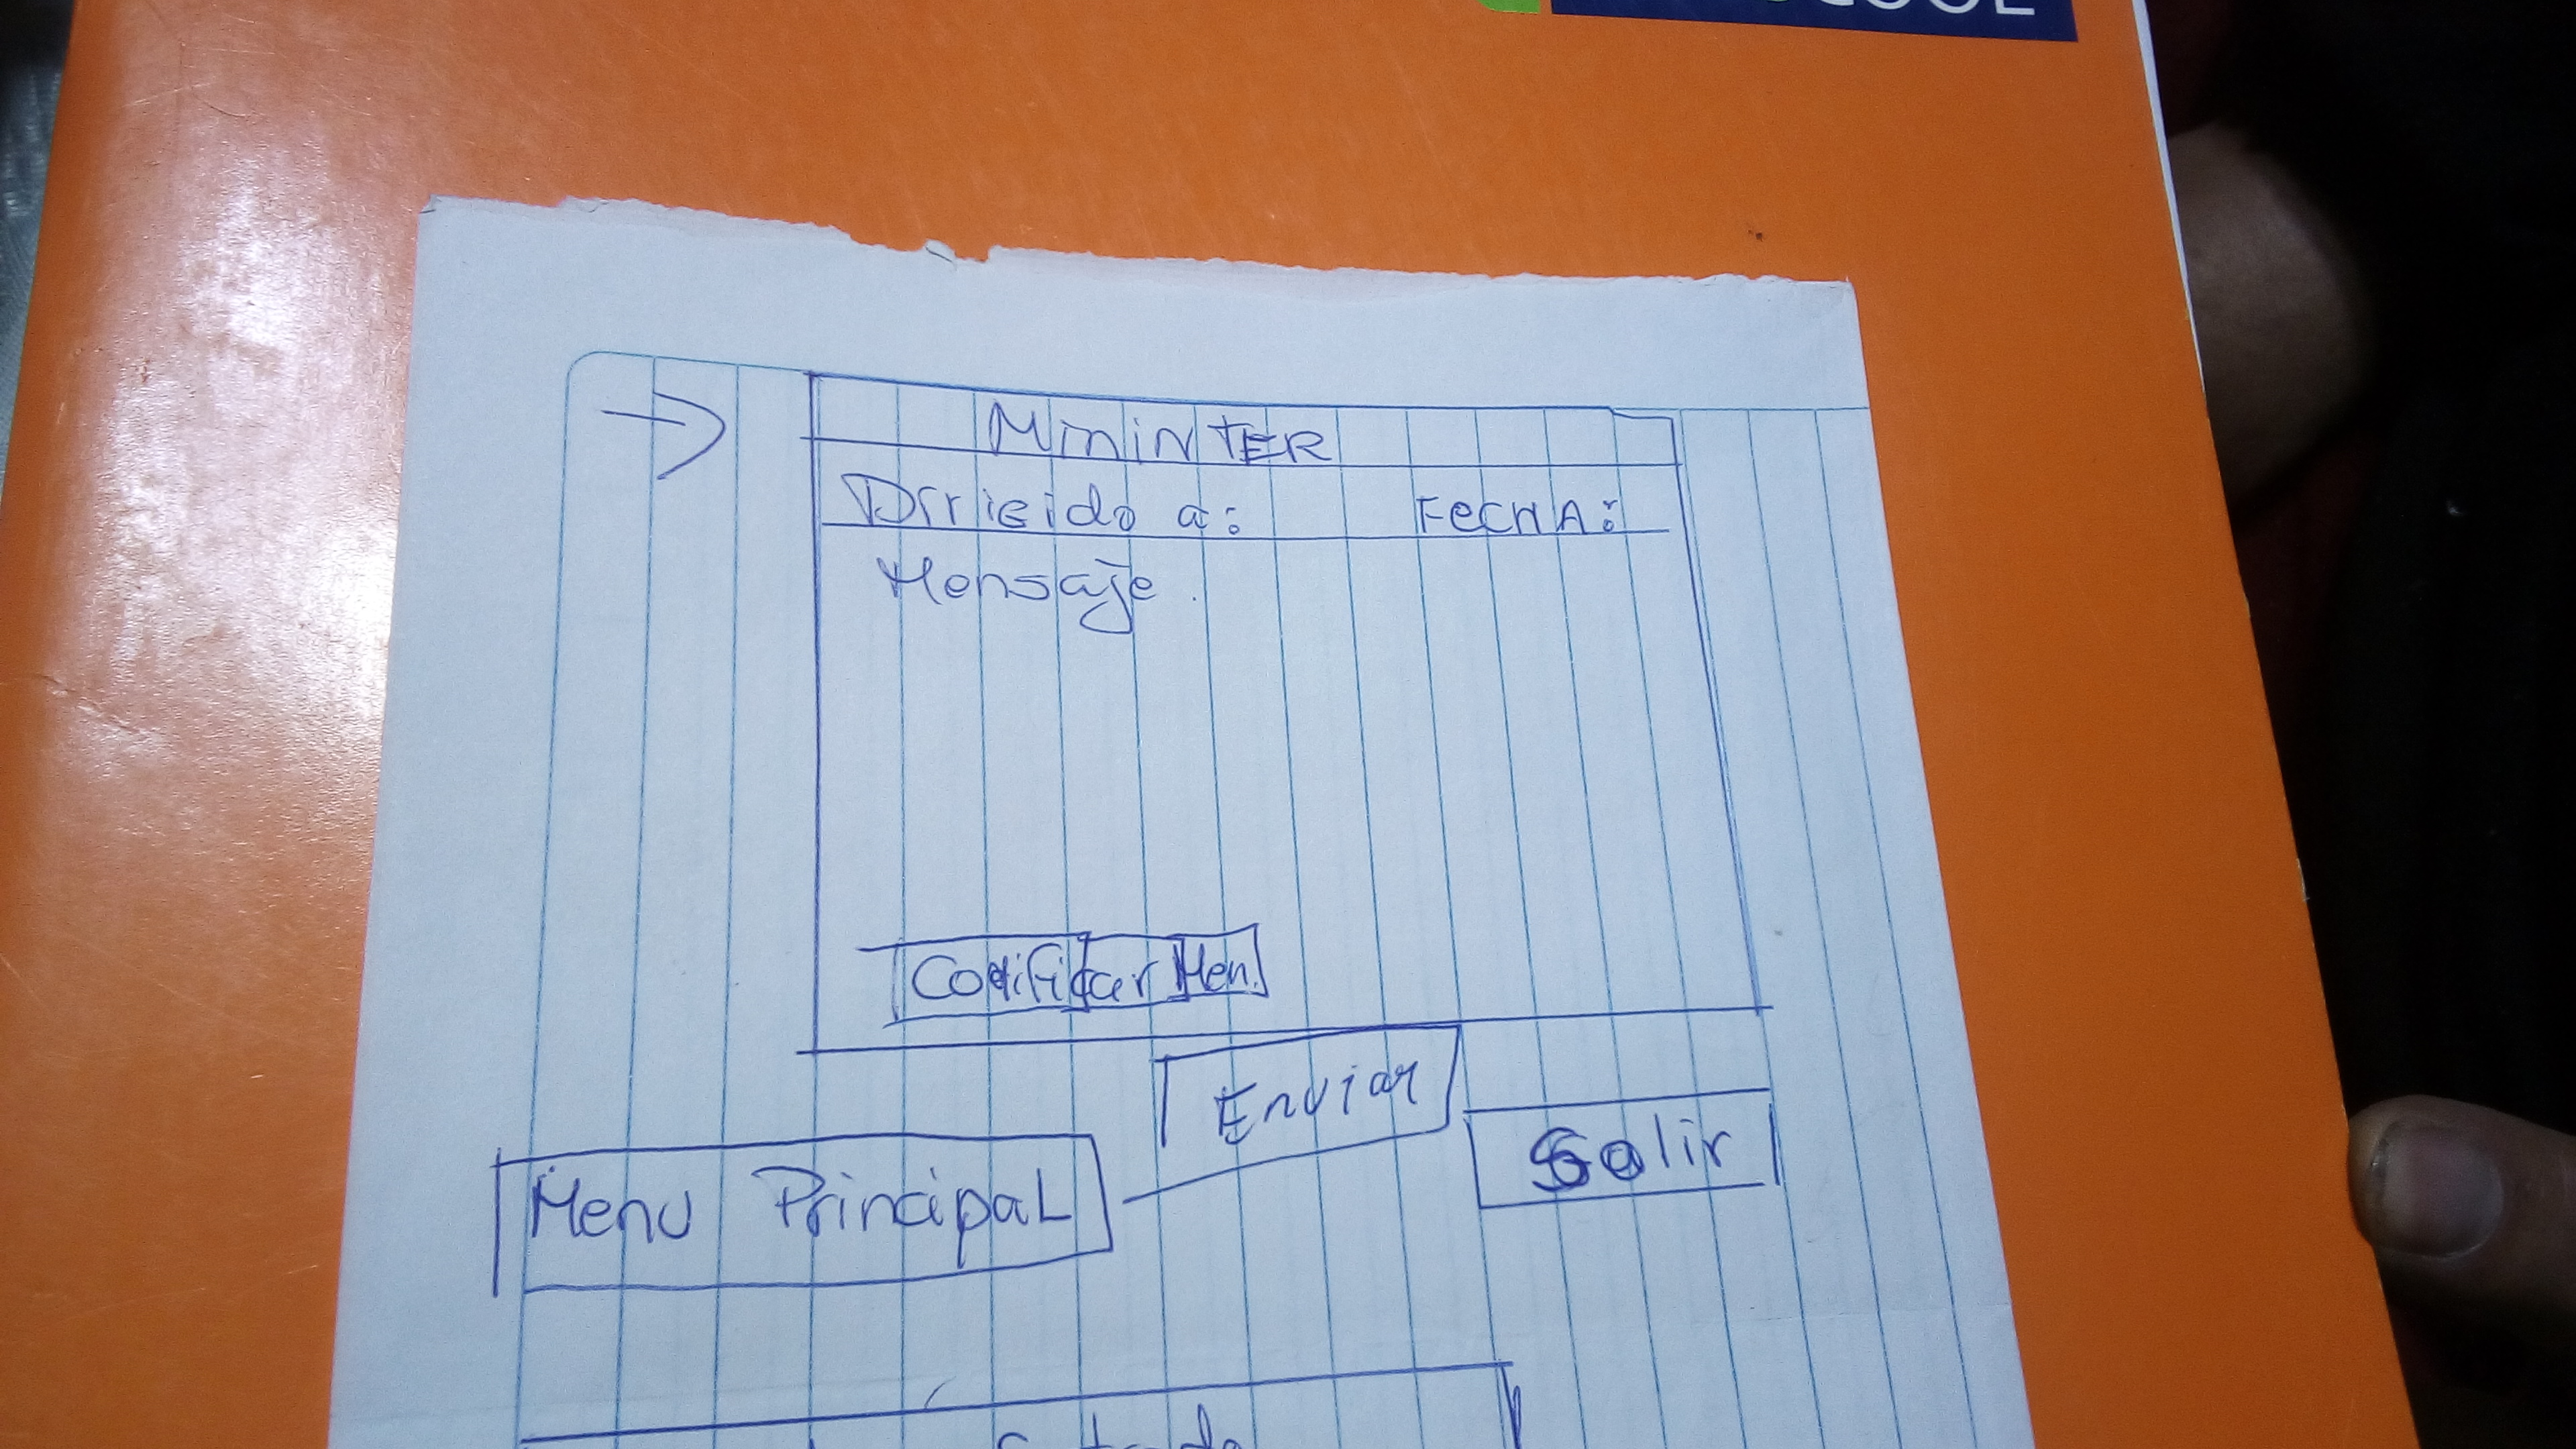 MININTER
Dirigido a: FECHA:
Mensaje.
Codificar Men.
Enviar
Salir
Menu Principal